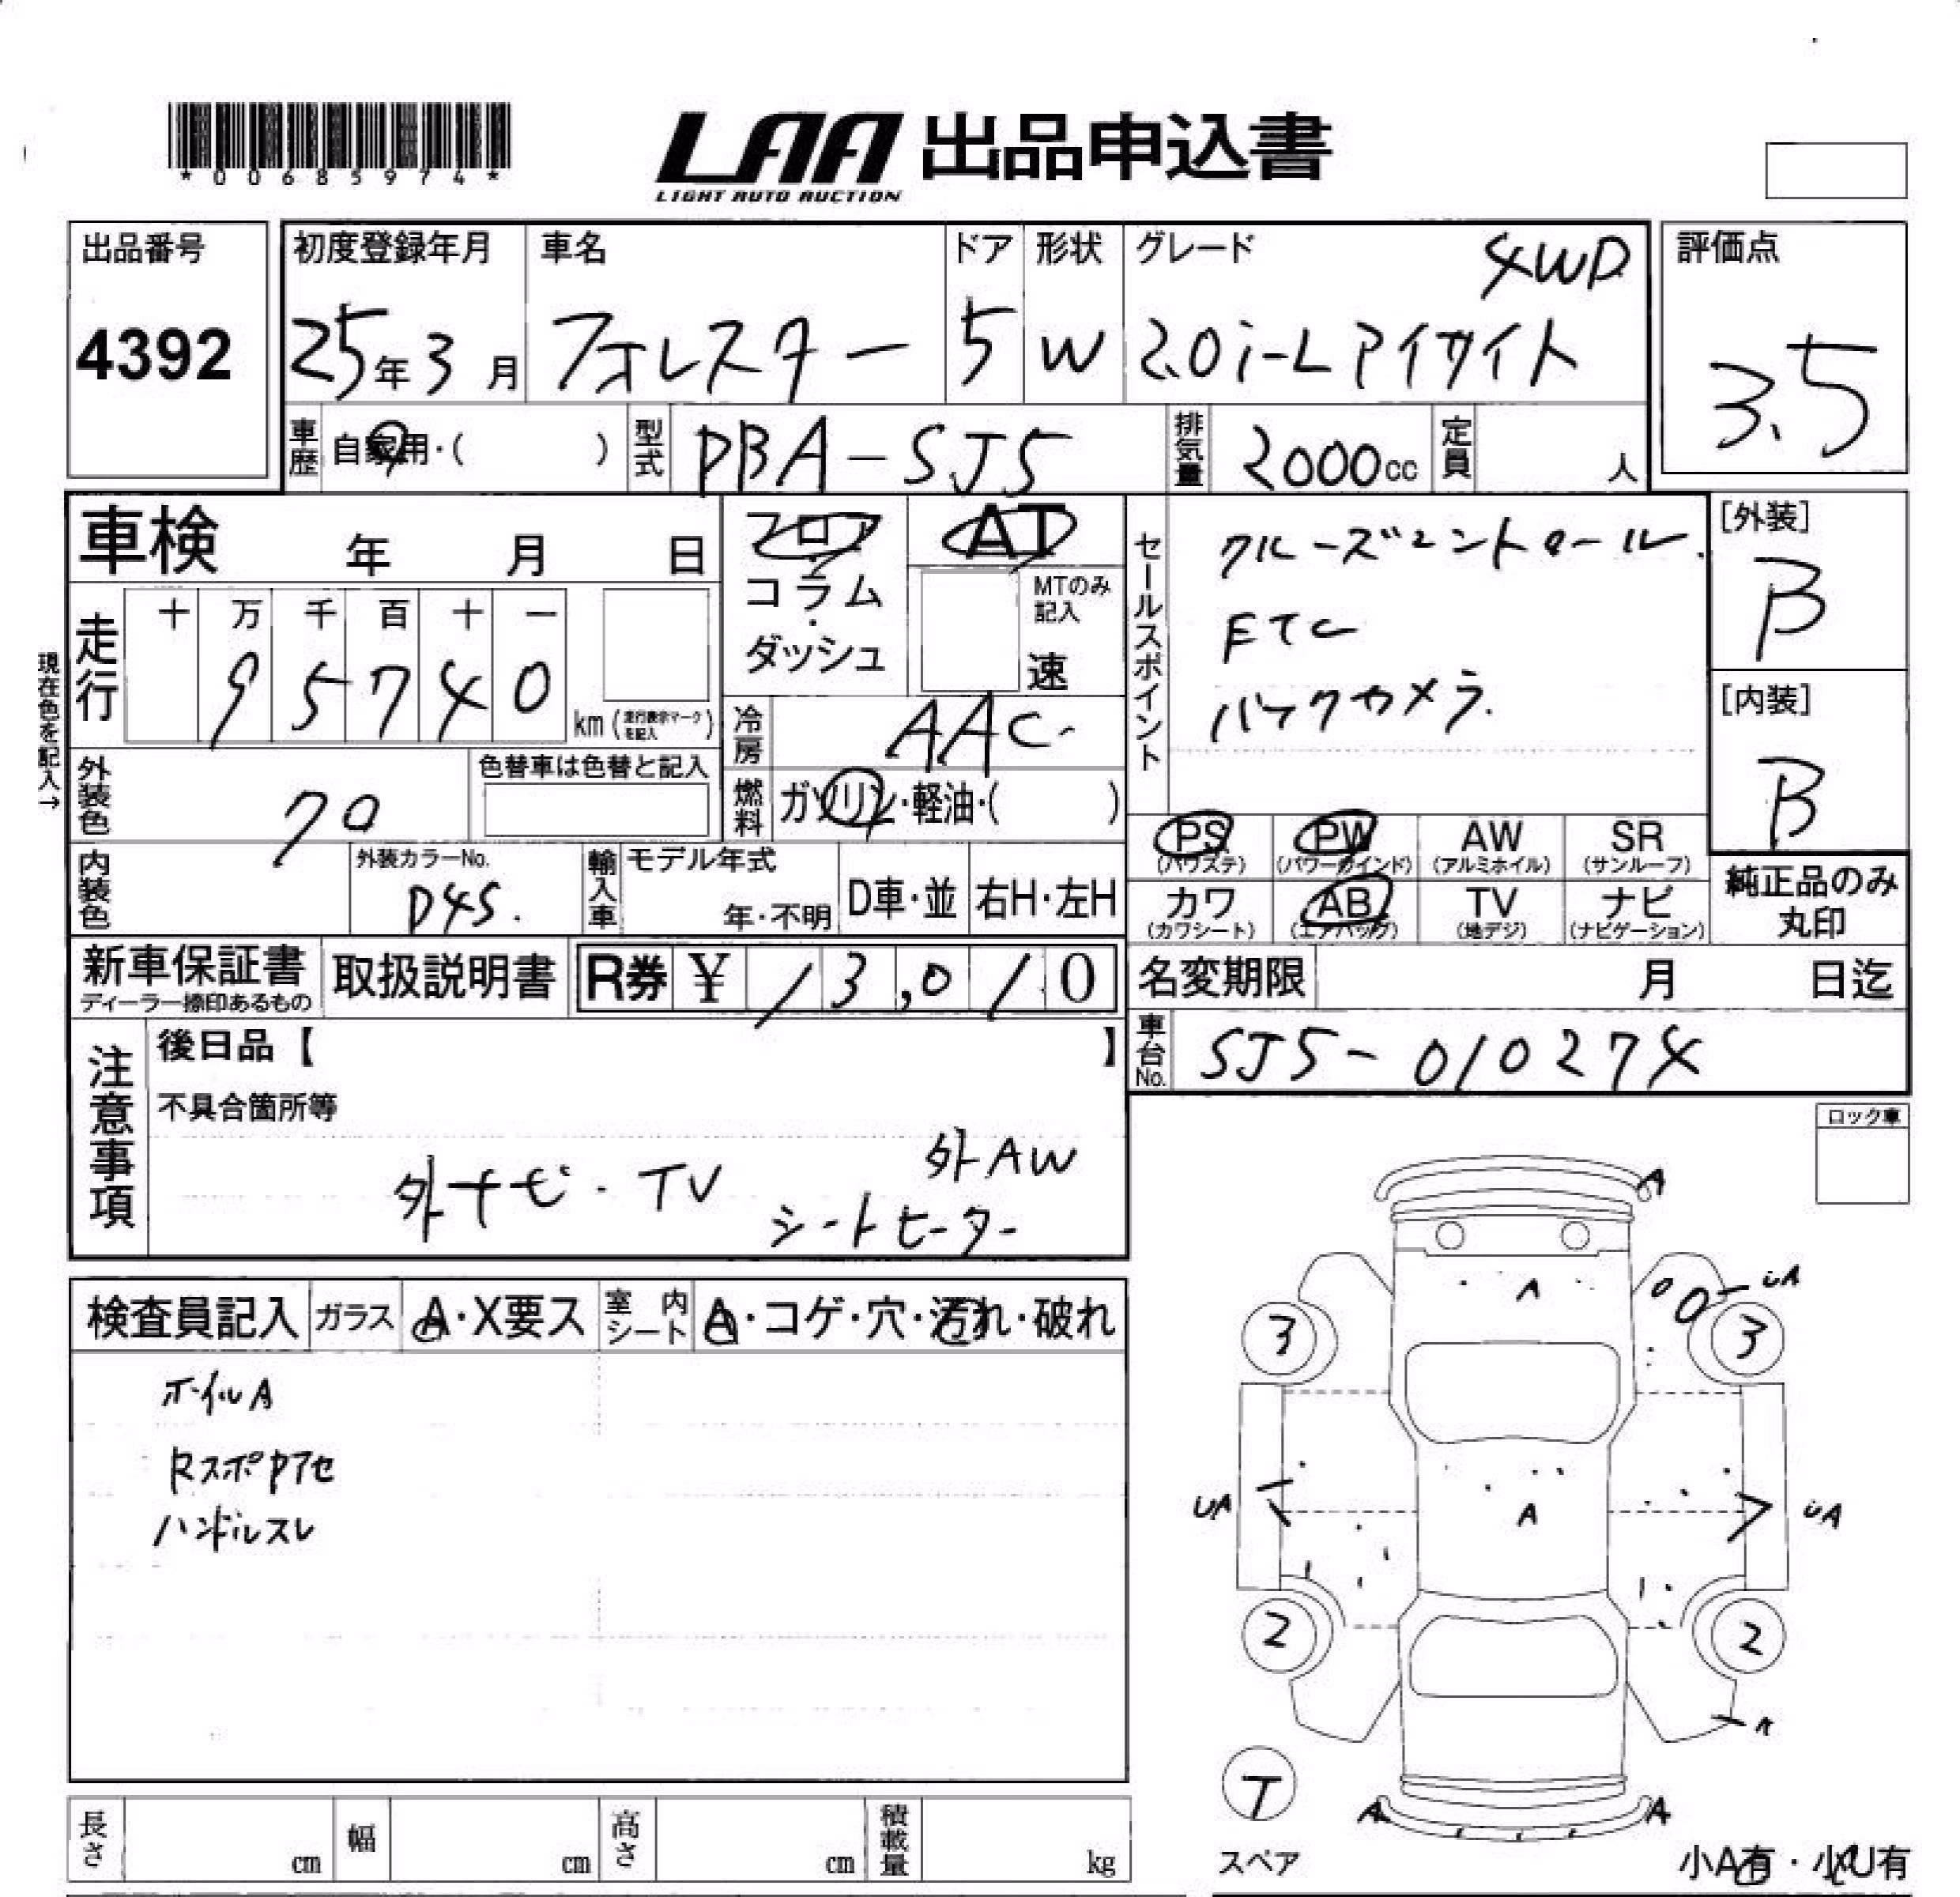 *00685974*
LAA 出品申込書
LIGHT AUTO AUCTION
出品番号
4392
初度登録年月
25年3月
車名
フォレスター
ドア
5
形状
W
グレード
4WD
2.0i-L アイサイト
評価点
3.5
車歴
自家用・( )
型式
DBA-SJ5
排気量
2000cc
定員
人
車検 年 月 日
フロア
コラム
・
ダッシュ
AT
MTのみ
記入
速
セールスポイント
クルーズコントロール.
ETC
バックカメラ.
[外装]
B
[内装]
B
現在色を記入→
走行
十 万 千 百 十 一
95740
km(走行表示マークを記入)
冷房
AAC
外装色
クロ
色替車は色替と記入
燃料
ガソリン・軽油・( )
内装色
外装カラーNo.
D4S.
輸入車
モデル年式
年・不明
D車・並
右H・左H
PS
(パワステ)
PW
(パワーウインド)
AW
(アルミホイル)
SR
(サンルーフ)
カワ
(カワシート)
AB
(エアバッグ)
TV
(地デジ)
ナビ
(ナビゲーション)
純正品のみ
丸印
新車保証書
ディーラー捺印あるもの
取扱説明書
R券 ¥ 13,010
名変期限 月 日迄
車台No.
SJ5-010274
注意事項
後日品【 】
不具合箇所等
外ナビ・TV
外AW
シートヒーター
ロック車
検査員記入
ガラス
A・X要ス
室内シート
A・コゲ・穴・汚れ・破れ
ホイルA
Rスポアセ
ハンドルスレ
A
A
UA
3
3
UA
A
UA
2
2
A
T
スペア
A
A
小A有・小U有
長さ
cm
幅
cm
高さ
cm
積載量
kg